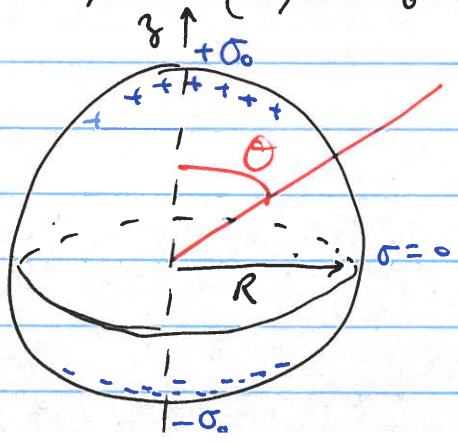 z
+σ₀
+ + + + + + +
θ
σ = 0
R
- - - - - - - - -
-σ₀